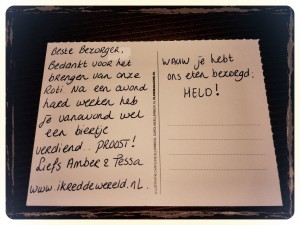 Beste Bezorger,
Bedankt voor het
brengen van onze
Roti. Na een avond
hard werken heb
je vanavond wel
een biertje
verdiend.. PROOST!
Liefs Amber & Tessa
www.ikreddewereld.nl.
WAUW je hebt
ons eten bezorgd:
HELD!